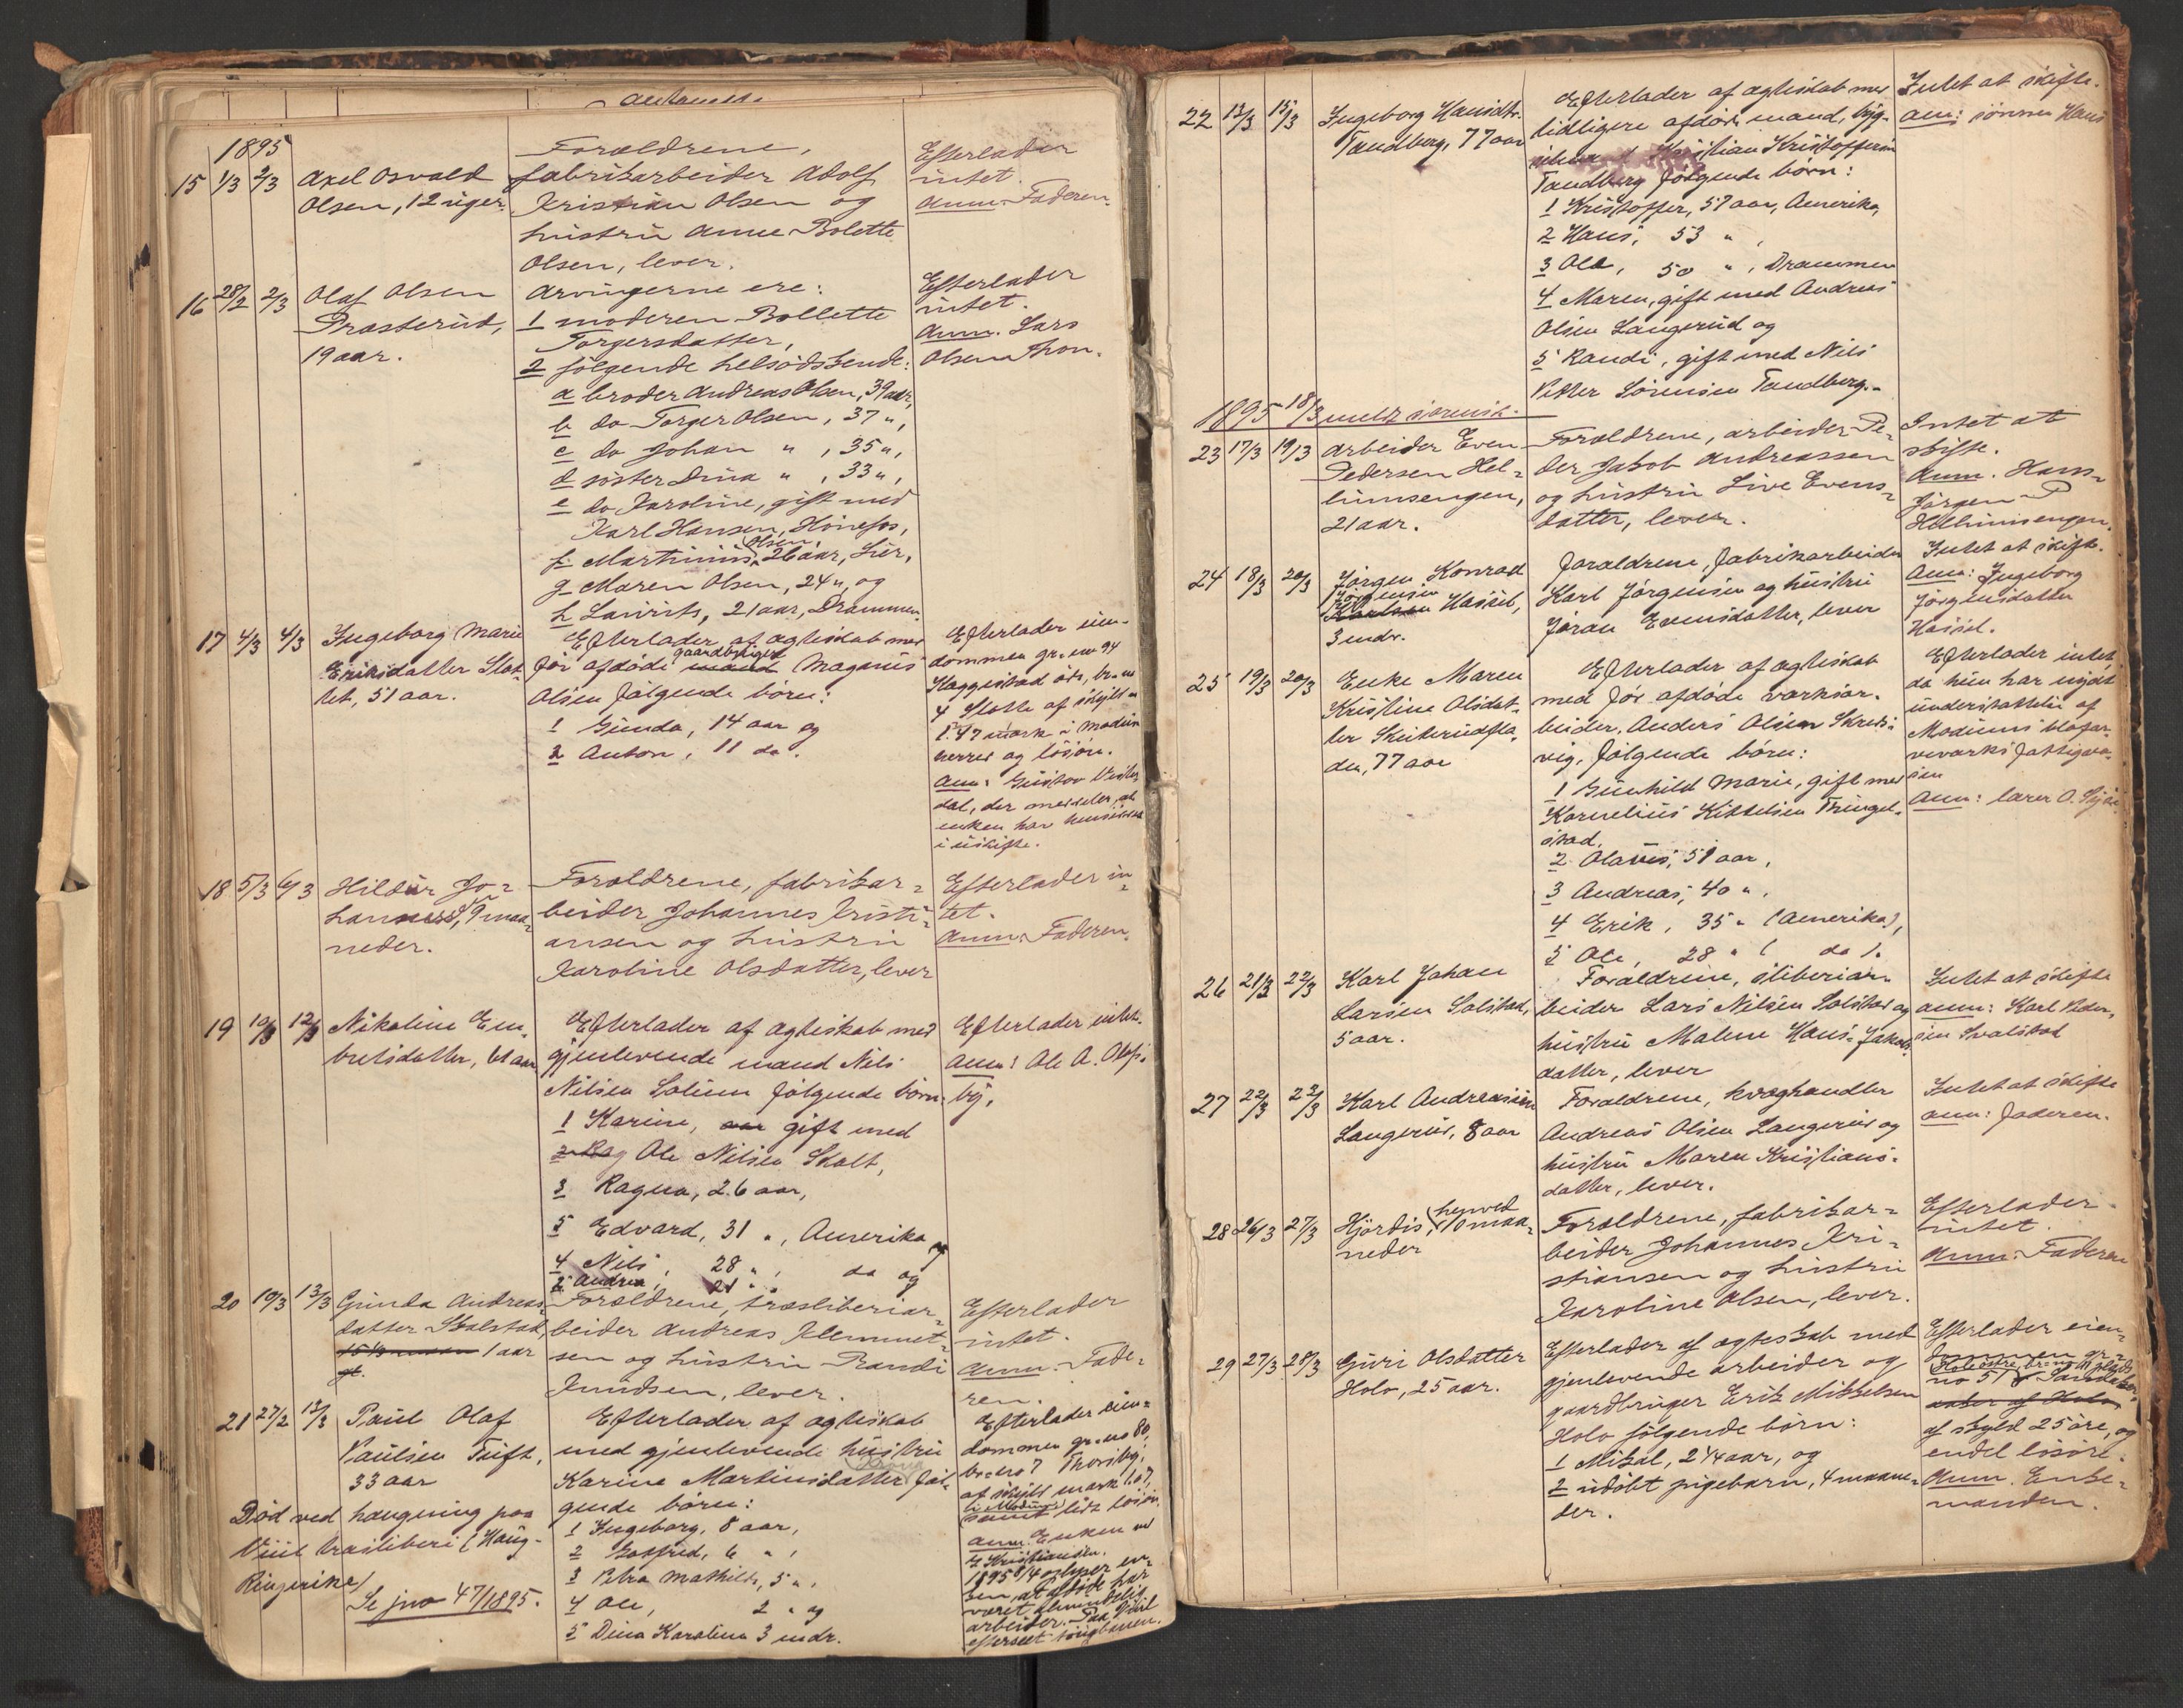 1895
15 1/3 2/3 Axel Osvald
Olsen, 12 uger.
Forældrene,
fabrikarbeider Adolf
Kristian Olsen og
hustru Anne Bolette
Olsen, lever.
Efterlader
intet.
Anm. Faderen.
16 28/2 2/3 Olaf Olsen
Præsterud,
19 aar.
Arvingerne ere:
1 moderen Bollette
Torgersdatter,
2 følgende helsødskende:
a broder Andreas Olsen, 39 aar,
b do Torger Olsen, 37 ",
c do Johan " , 35 ",
d søster Dina " , 33 ",
e do Karoline, gift med
Karl Hansen, Hønefos,
f. Martinius Olsen, 26 aar, Lier,
g Maren Olsen, 24 ", og
h Laurits, 21 aar, Drammen.
Efterlader
intet.
Anm. Lars
Olsen
17 4/3 4/3 Ingeborg Marie
Eriksdatter Slat-
tet, 51 aar.
Efterlader af ægteskab med
før afdøde gaardbruger mand Magnus
Olsen følgende børn:
1 Gunda, 14 aar og
2 Anton, 11 do.
Efterlader eien-
dommen gr. no 94
Haggestad øde, br. no
4 Slatte af skyld m
1.47 mark i Modum
herred og løsøre.
Anm: Gustav
dal, der meddeler, at
enken har hensiddet
i uskifte.
18 5/3 6/3 Hildur Jo-
hannesd., 9 maa-
neder.
Forældrene, fabrikar-
beider Johannes Kristi-
ansen og hustru
Karoline Olsdatter, lever
Efterlader in-
tet.
Anm: Faderen.
19 10/3 12/3 Nikoline Em-
bretsdatter, 61 aar
Efterlader af ægteskab med
gjenlevende mand Nils
Nilsen Solum følgende børn:
1 Karine, aar gift med
2 Rag Ole Nilsen Skalt,
3 Ragna, 26 aar,
5 Edvard, 31 ", Amerika og
4 Nils, 28 ", do og
2 Andrea, 21 "
Efterlader intet.
Anm: Ole A. Olafs-
by.
20 10/3 13/3 Gunda Andreas-
datter Skalstad,
1 aar
gl.
Forældrene, træsliberiar-
beider Andreas Klemmet-
sen og hustru Randi
Knudsen, lever.
Efterlader
intet.
Anm. Fade-
ren.
21 27/2 13/3 Paul Olaf
Paulsen Tuft,
33 aar
Død ved hængning paa
Viul træsliberi (Haug-
Ringerike)
Se jno 47/1895.
Efterlader af ægteskab
med gjenlevende hustru
Karine Martinsdatter føl-
gende børn:
1 Ingeborg, 8 aar,
2 Gotfred, 6 ",
3 Petra Mathilde, 5 ",
4 Ole, 2 " og
5 Dina Karoline 3 mdr.
Efterlader eien-
dommen gr. no 80,
br. no 7 Thorsby,
af skyld mark 1.07,
i Modum
samt lidt løsøre.
Anm. Enken ved
Kristiansen.
1895 8/4 oplyser en-
ken, at afdøde har
været almindelig
arbeider. Paa Viul
efterseet
22 12/3 15/3 Ingeborg Hansdtr.
Tandberg, 77 aar
Efterlader af ægteskab med
tidligere afdøde mand, byg-
selmand Kristian Kristoffersen
Tandberg følgende børn:
1 Kristoffer, 57 aar, Amerika,
2 Hans, 53 ",
3 Ole, 50 ", Drammen
4 Maren, gift med Andreas
Olsen Langerud og
5 Randi, gift med Nils
Petter Sørensen Tandberg.
Intet at skifte.
Anm: sønnen Hans
1895 18/3 meldt sorensk.
23 17/3 19/3 Arbeider Even
Pedersen Hel-
lumsengen,
21 aar.
Forældrene, arbeider Pe-
der Jakob Andreassen
og hustru Live Evens-
datter, lever.
Intet at
skifte.
Anm. Hans
Jørgen P
Hellumsengen.
24 18/3 20/3 Jørgen Konrad
Jørgensen
Karlsen Hassel,
3 mdr.
Forældrene, fabrikarbeider
Karl Jørgensen og hustru
Jøran Evensdatter, lever
Intet at skifte.
Anm: Ingeborg
Jørgensdatter
Hassel.
25 19/3 20/3 Enke Maren
Kristine Olsdat-
ter Skuterudfla-
den, 77 aar
Efterlader af ægteskab
med før afdøde værksar-
beider Anders Olsen Skreds-
vig, følgende børn:
1 Gunhild Marie, gift med
Kornelius Kittelsen Thingel-
stad,
2 Olaus, 51 aar,
3 Andreas, 40 ",
4 Erik, 35 " (Amerika),
5 Ole, 28 " ( do ).
Efterlader intet,
da hun har nydt
understøttelse af
Modums blafar-
veværks fattigvæ-
sen
Anm: lærer O.
26 21/3 22/3 Karl Johan
Larsen Solstad,
5 aar.
Forældrene, sliberiar-
beider Lars Nilsen Solstad og
hustru Malene Hans-Jakobs-
datter, lever
Intet at skifte
Anm: Karl Peder-
sen Svalstad
27 22/3 22/3 Karl Andreassen
Langerud, 8 aar
Forældrene, kvæghandler
Andreas Olsen Langerud og
hustru Maren Kristians-
datter, lever.
Intet at skifte
Anm: Faderen.
28 26/3 27/3 Hjørdis, henved 10 maa-
neder
Forældrene, fabrikar-
beider Johannes Kri-
stiansen og hustru
Karoline Olsen, lever.
Efterlader
intet.
Anm: Faderen
29 27/3 28/3 Guri Olsdatter
Holo, 25 aar.
Efterlader af ægteskab med
gjenlevende arbeider og
gaardbruger Erik Mikkelsen
Holo følgende børn:
1 Mikal, 2 1/4 aar, og
2 udøbt pigebarn, 4 maane-
der.
Efterlader eien-
dommen gr.-
no 51
af skyld 25 øre, og
endel løsøre.
Anm. Enke-
manden.